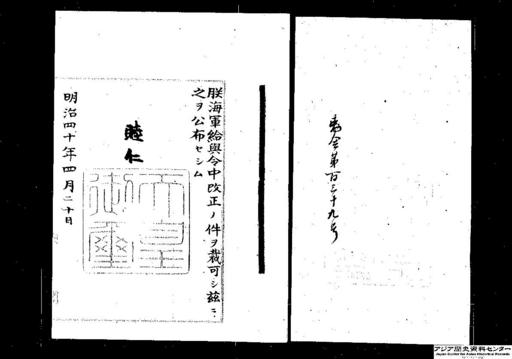 勅令第百三十九号
朕海軍給與令中改正ノ件ヲ裁可シ茲ニ
之ヲ公布セシム
睦仁
天皇御璽
明治四十年四月二十日
アジア歴史資料センター
Japan Center for Asian Historical Records